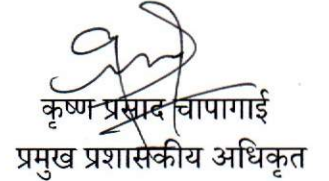 कृष्ण प्रसाद चापागाई
प्रमुख प्रशासकीय अधिकृत